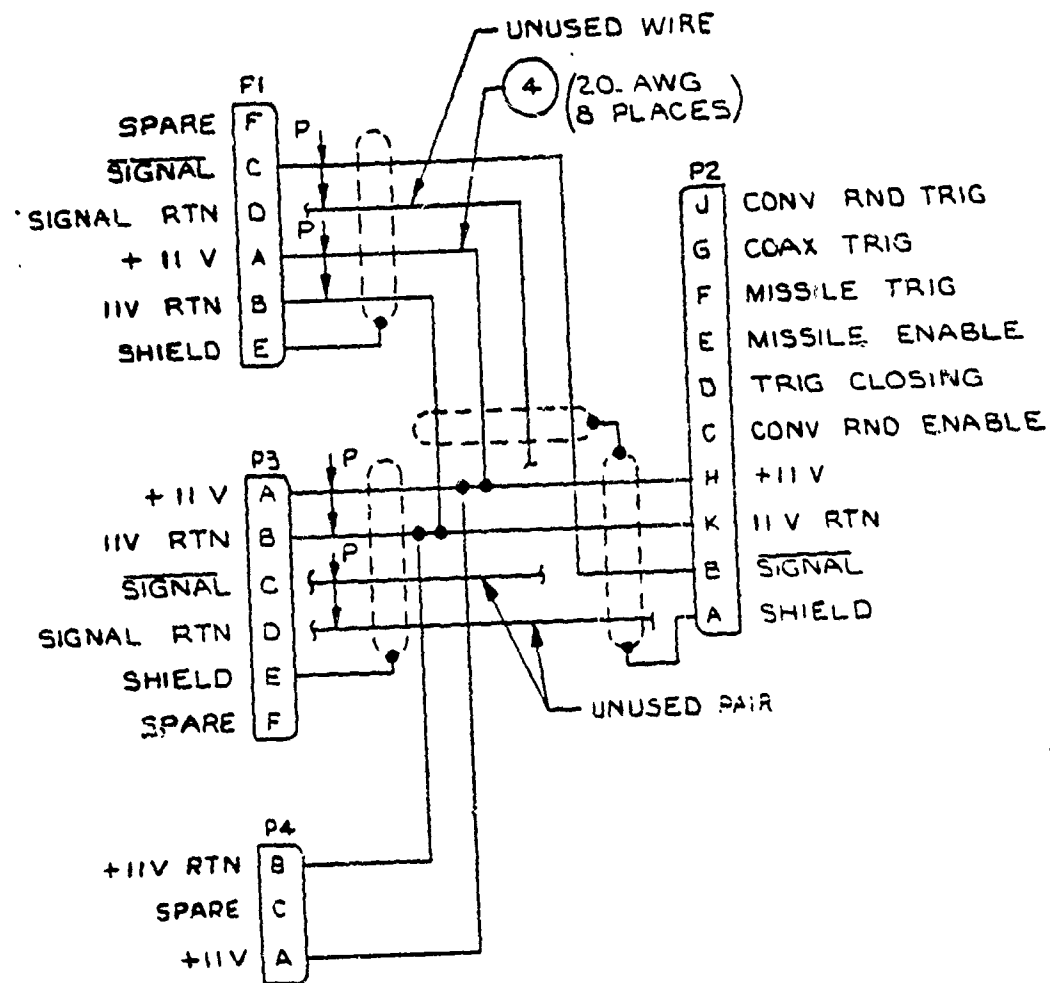 UNUSED WIRE
4 (20 AWG
8 PLACES)
P1
SPARE F
S̅I̅G̅N̅A̅L̅ C
SIGNAL RTN D
+ 11 V A
11V RTN B
SHIELD E
P
P
P2
J CONV RND TRIG
G COAX TRIG
F MISSILE TRIG
E MISSILE ENABLE
D TRIG CLOSING
C CONV RND ENABLE
H +11 V
K 11 V RTN
B S̅I̅G̅N̅A̅L̅
A SHIELD
P3
+ 11 V A
11V RTN B
S̅I̅G̅N̅A̅L̅ C
SIGNAL RTN D
SHIELD E
SPARE F
P
P
UNUSED PAIR
P4
+11V RTN B
SPARE C
+11V A